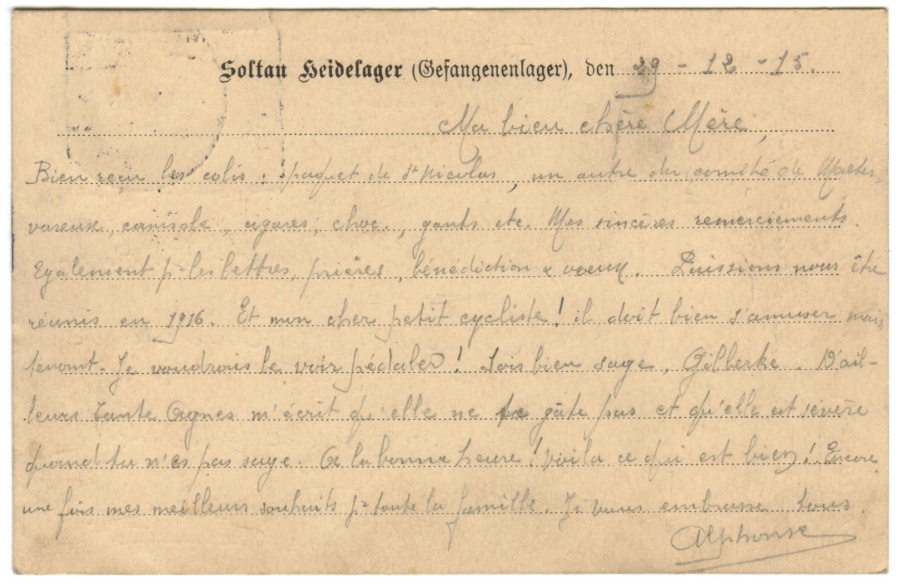 Soltau Heidelager (Gefangenenlager), den 29 - 12 - 15.
Ma bien chère Mère,
Bien reçu les colis : paquet de St Nicolas, un autre du comité de
vareuse, camisole, cigares, choc., gants etc. Mes sincères remerciements
Egalement pr les lettres, prières, bénédiction & voeux. Puissions nous être
réunis en 1916. Et mon cher petit cycliste! il doit bien s'amuser main
tenant. Je voudrais le voir pédaler! Sois bien sage, Gilberke. D'ail-
leurs Tante Agnes m'écrit qu'elle ne te gâte pas et qu'elle est sévère
quand tu n'es pas sage. A la bonne heure! voilà ce qui est bien! Encore
une fois mes meilleurs souhaits pr toute la famille. Je vous embrasse tous
Alphonse